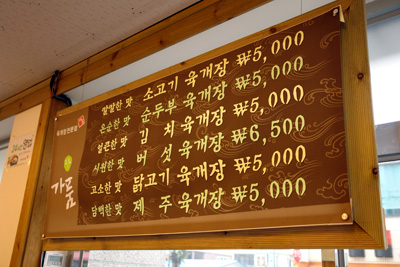 육개장 전문점
가름
깔깔한 맛 소고기 육개장 ₩5,000
은은한 맛 순두부 육개장 ₩5,000
얼큰한 맛 김 치 육개장 ₩5,000
시원한 맛 버 섯 육개장 ₩6,500
고소한 맛 닭고기 육개장 ₩5,000
담백한 맛 제 주 육개장 ₩5,000